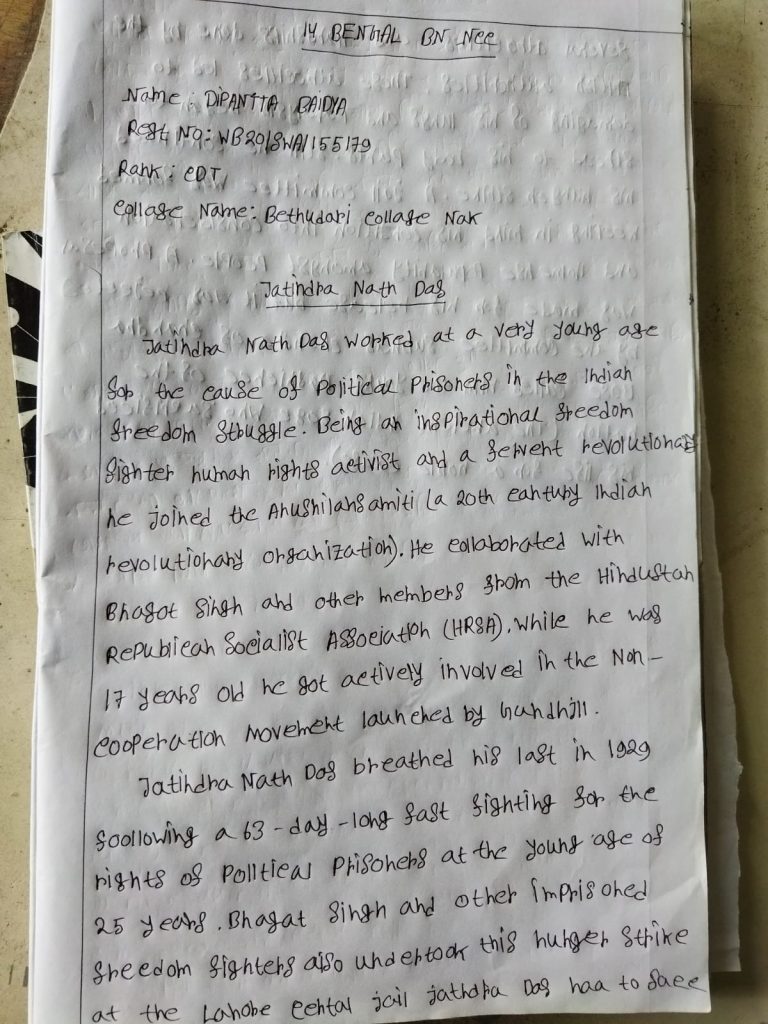 14 BENGAL BN NCC
Name: DIPANTTA BAIDYA
Regt NO: WB2018WA1155179
Rank: CDT
Collage Name: Bethudari Collage Nak
Jatindra Nath Das
Jatindra Nath Das worked at a very young age
for the cause of Political Prisoners in the Indian
freedom Struggle. Being an inspirational freedom
fighter human rights activist and a fervent revolutionary
he joined the Anushilansamiti (a 20th cantury Indian
revolutionary organization). He collaborated with
Bhagot Singh and other members from the Hindustan
Republican Socialist Association (HRSA). While he was
17 years old he got actively involved in the Non-
cooperation Movement launched by Gandhiji.
Jatindra Nath Das breathed his last in 1929
foollowing a 63-day-long fast fighting for the
rights of Political Prisoners at the young age of
25 years. Bhagat Singh and other Imprisoned
freedom fighters also undertook this hunger Strike
at the Lahore Cental jail Das had to face